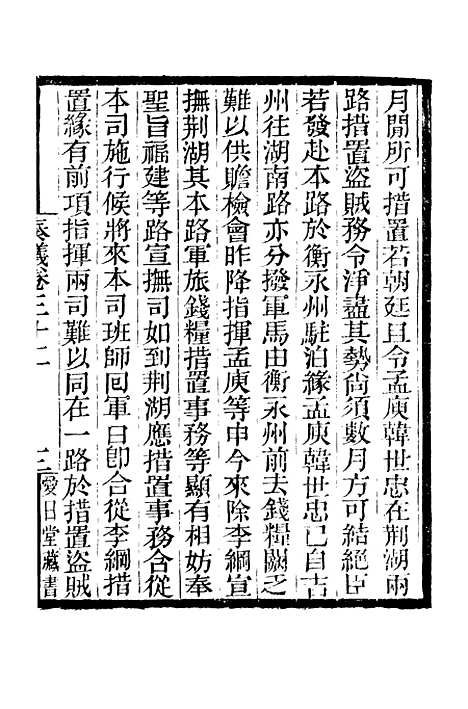 月間所可措置若朝廷且令孟庾韓世忠在荆湖兩
路措置盜賊務令淨盡其勢尙須數月方可結絕臣
若發赴本路於衡永州駐泊緣孟庾韓世忠已自吉
州往湖南路亦分撥軍馬由衡永州前去錢糧闕乏
難以供贍檢會昨降指揮孟庾等申今來除李綱宣
撫荆湖其本路軍旅錢糧措置事務等顯有相妨奉
聖旨福建等路宣撫司如到荆湖應措置事務合從
本司施行候將來本司班師回軍日卽合從李綱措
置緣有前項指揮兩司難以同在一路於措置盜賊
奏議卷三十二 三 愛日堂藏書